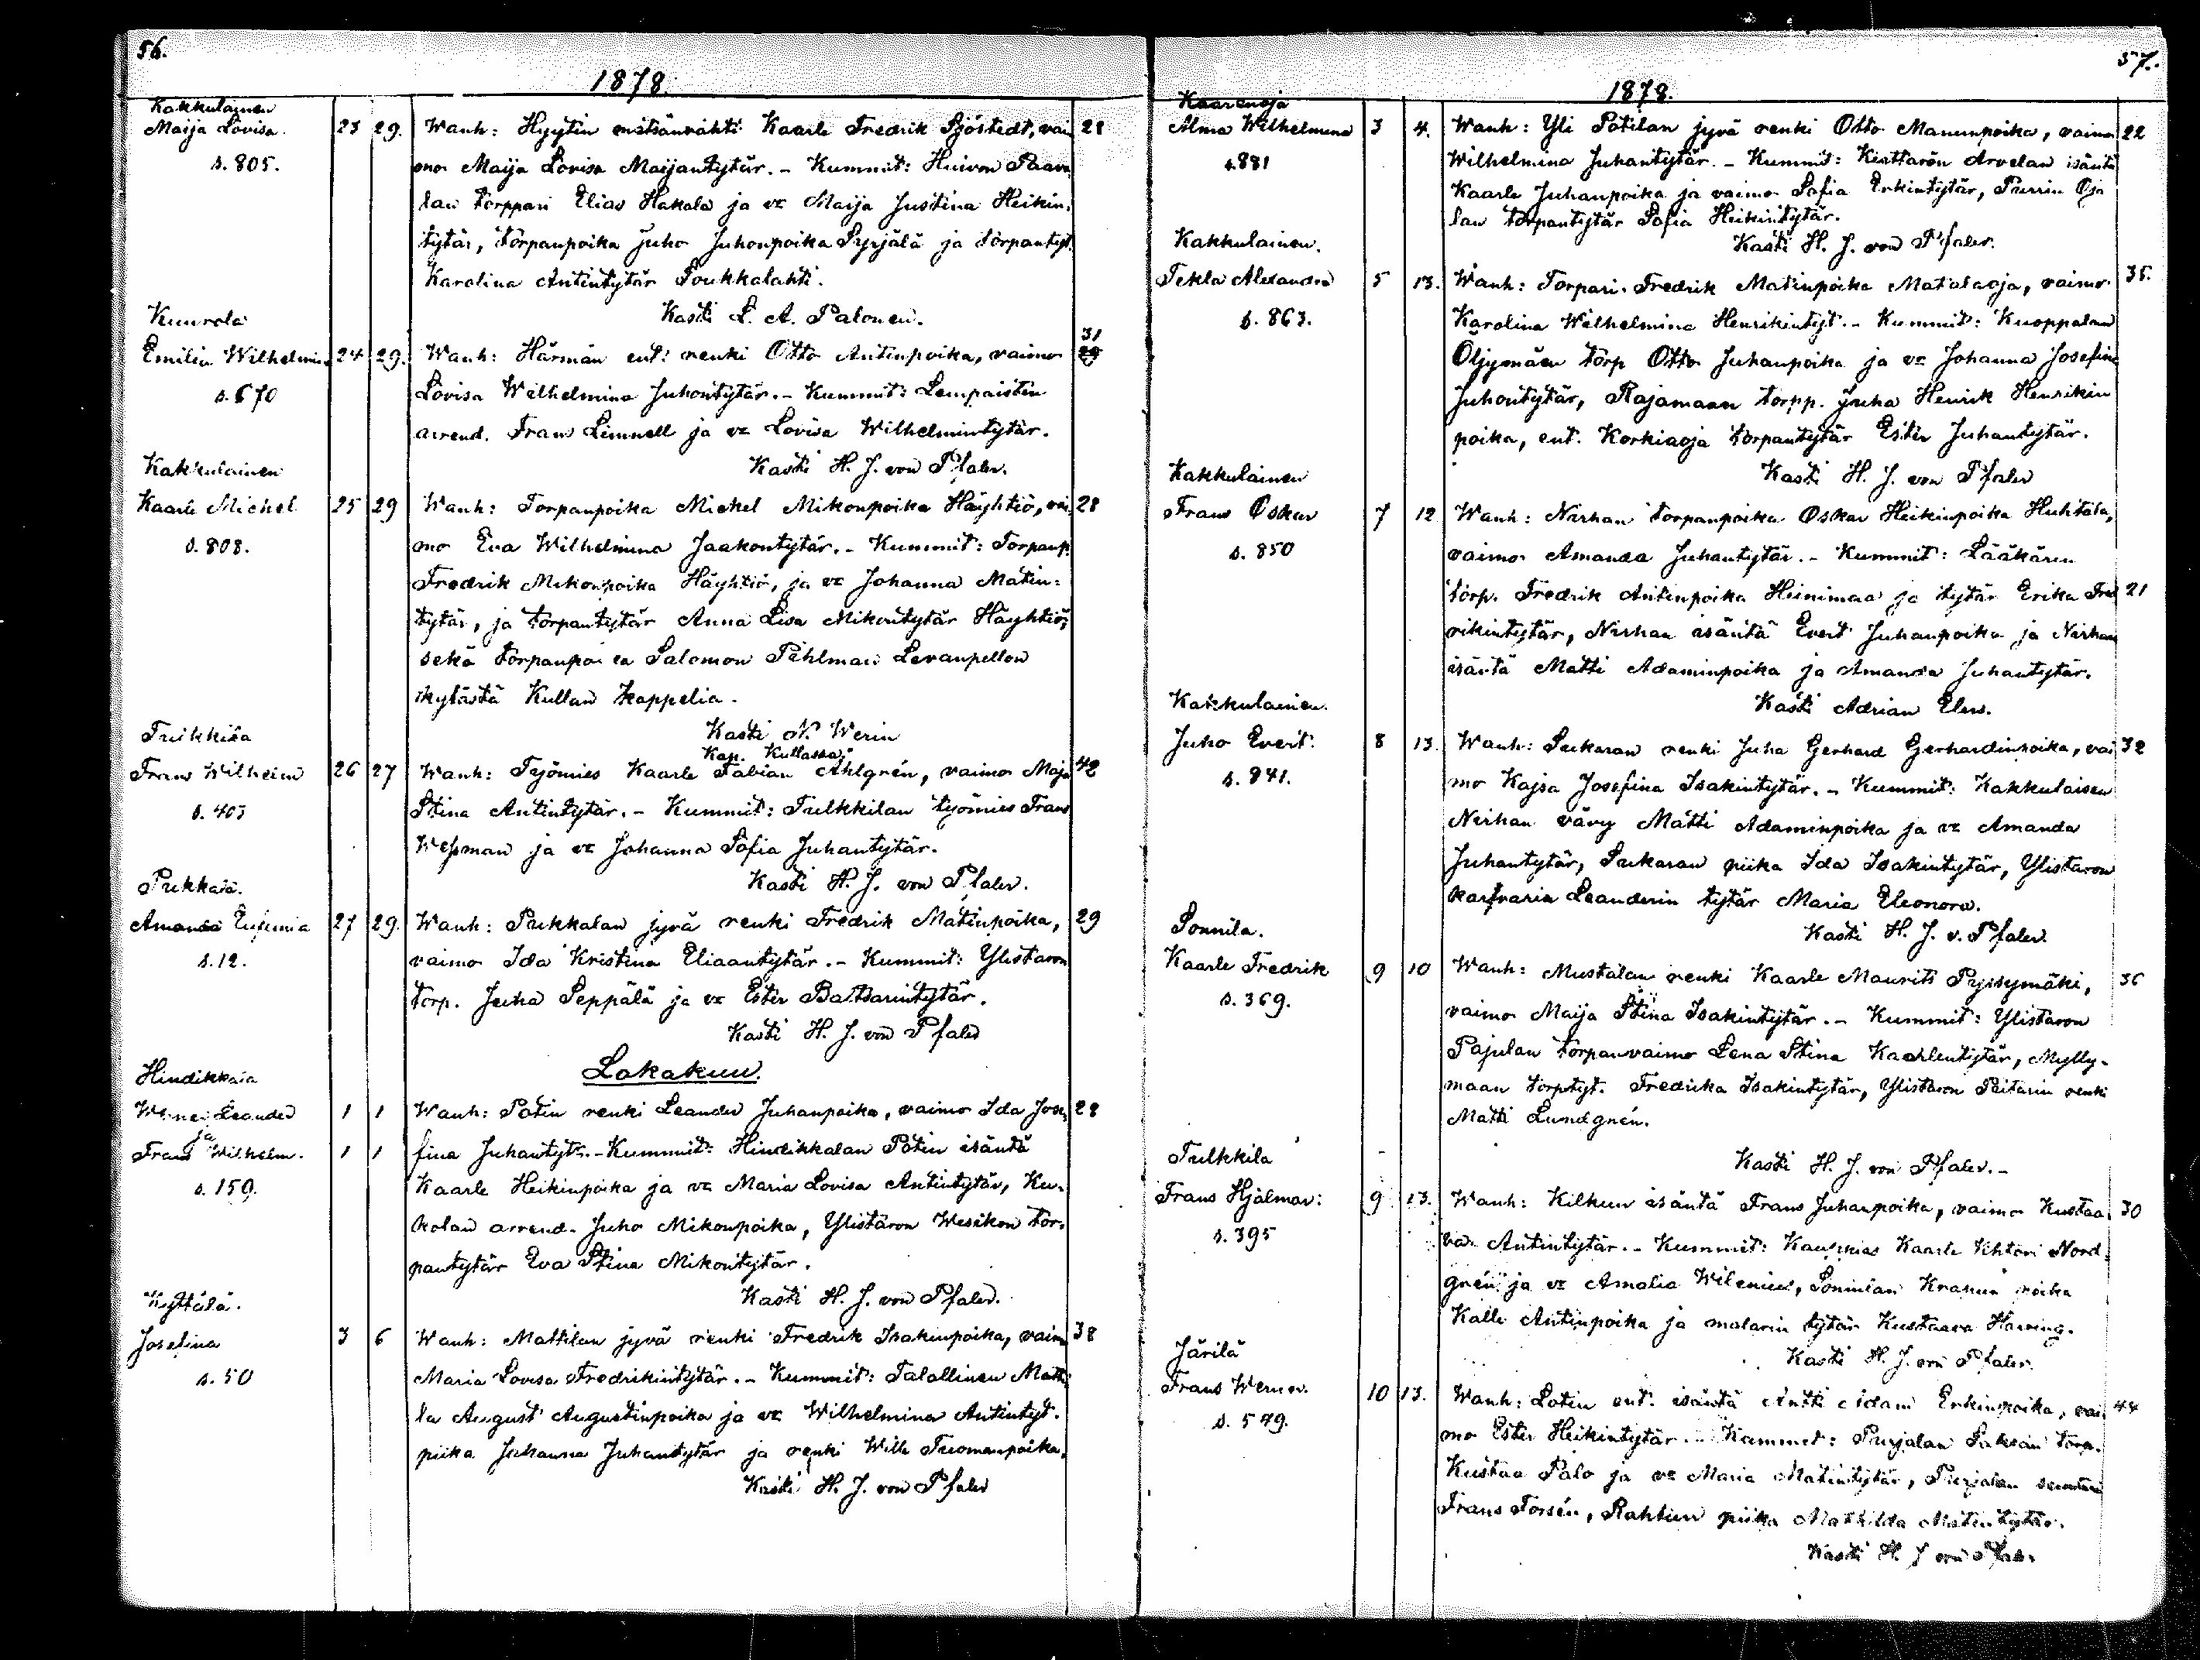 56.
1878.
Kakkulainen
Maija Lovisa. 23 29. Wanh: Hyytin metsänvahti Kaarle Fredrik Sjöstedt, vai 28
s. 805. mo Maija Lovisa Maijantytär. - Kummit: Huivon Paava
lan torppari Elias Hakala ja vo Maija Justina Heikin,
tytär, torpanpoika Juho Juhonpoika Syrjälä ja torpantyt.
Karolina Antintytär Soukkalahti.
Kasti L. A. Palonen.
Kuurola 31
Emilia Wilhelmin 24 29. Wanh: Härmän ent: renki Otto Antinpoika, vaimo
s. 670 Lovisa Wilhelmina Juhontytär. - Kummit: Lempaistin
arrend. Frans Limnell ja vo Lovisa Wilhelmintytär.
Kasti H. J. von Pfaler.
Kakkulainen
Kaarle Michel 25 29 Wanh: Torpanpoika Michel Mikonpoika Häyhtiö, vai 28
s. 808. mo Eva Wilhelmina Jaakontytär. - Kummit: Torpanp.
Fredrik Mikonpoika Häyhtiö, ja vo Johanna Matin-
tytär, ja torpantytär Anna Lisa Mikontytär Häyhtiö,
sekä torpanpoika Salomon Pihlman Levanpellon
kylästä Kullan kappelia.
Kasti N. Werin
Kap. Kullassa.
Tulkkila
Frans Wilhelm 26 27 Wanh: Työmies Kaarle Fabian Ahlgrén, vaimo Maja 42
s. 403 Stina Antintytär. - Kummit: Tulkkilan työmies Frans
Wessman ja vo Johanna Sofia Juhantytär.
Kasti H. J. von Pfaler.
Pukkala.
Amanda Eufemia 27 29. Wanh: Pukkalan jyvä renki Fredrik Matinpoika, 29
s. 12. vaimo Ida Kristina Eliaantytär. - Kummit: Ylistaron
torp. Juha Seppälä ja vo Ester Baltsarintytär.
Kasti H. J. von Pfaler
Lokakuu.
Hindikkala
Werner Leander 1 1 Wanh: Potin renki Leander Juhanpoika, vaimo Ida Jose, 28
ja
Frans Wilhelm. 1 1 fina Juhantyt. - Kummit: Hindikkalan Potin isäntä
s. 159. Kaarle Heikinpoika ja vo Maria Lovisa Antintytär, Ku-
kolan arrend. Juho Mikonpoika, Ylistaron Wesikon tor-
pantytär Eva Stina Mikontytär.
Kasti H. J. von Pfaler.
Kyttälä.
Josefina 3 6 Wanh: Mattilan jyvä renki Fredrik Isakinpoika, vaimo 38
s. 50 Maria Lovisa Fredrikintytär. - Kummit: Talollinen Matti
la August Augustinpoika ja vo Wilhelmina Antintyt.
piika Juhanna Juhantytär ja renki Wille Tuomanpoika.
Kasti H. J. von Pfaler
57.
1878.
Kaarenoja
Alma Wilhelmina 3 4. Wanh: Yli Potilan jyvä renki Otto Manunpoika, vaimo 22
s. 881 Wilhelmina Juhantytär. - Kummit: Kiettarön Arvelan isäntä
Kaarle Juhanpoika ja vaimo Sofia Erkintytär, Purrin Oja
lan torpantytär Sofia Heikintytär.
Kasti H. J. von Pfaler.
Kakkulainen.
Tekla Alexandra 5 13. Wanh: Torpari Fredrik Matinpoika Matalaoja, vaimo 35.
s. 863. Karolina Wilhelmina Henrikintyt. - Kummit: Kuoppalan
Öljymäen torp Otto Juhanpoika ja vo Johanna Josefina
Juhontytär, Rajamaan torpp. Juha Henrik Henrikin
poika, ent. Korkiaoja torpantytär Ester Juhantytär.
Kasti H. J. von Pfaler
Kakkulainen
Frans Oskar 7 12 Wanh: Nirhan torpanpoika Oskar Heikinpoika Huhtala,
s. 850 vaimo Amanda Juhantytär. - Kummit: Lääkärin
torp. Fredrik Antinpoika Heinimaa ja tytär Erika Fred 21
rikintytär, Nirhan isäntä Evert Juhanpoika ja Nirhan
isäntä Matti Adaminpoika ja Amanda Juhantytär.
Kasti Adrian Elers.
Kakkulainen.
Juho Evert. 8 13. Wanh: Sukaran renki Juha Gerhard Gerhardinpoika, vai 32
s. 841. mo Kajsa Josefina Isakintytär. - Kummit: Kakkulaisen
Nirhan vävy Matti Adaminpoika ja vo Amanda
Juhantytär, Sukaran piika Ida Isakintytär, Ylistaron
karfvaria Leanderin tytär Maria Eleonora.
Kasti H. J. v. Pfaler.
Sonnila.
Kaarle Fredrik 9 10 Wanh: Mustalan renki Kaarle Maurits Pyysymäki, 36
s. 369. vaimo Maija Stina Isakintytär. - Kummit: Ylistaron
Pajulan torpanvaimo Lena Stina Kaarlentytär, Mylly-
maan torptyt. Fredrika Isakintytär, Ylistaron Peitarin renki
Matti Lundgrén.
Kasti H. J. von Pfaler. -
Tulkkila
Frans Hjalmar: 9 13. Wanh: Kilkun isäntä Frans Juhanpoika, vaimo Kustaa, 30
s. 395 va Antintytär. - Kummit: Kauppias Kaarle Vihtori Nord-
grén ja vo Amalia Wilenius, Sonnilan Krakun poika
Kalle Antinpoika ja malarin tytär Kustaava Having.
Kasti H. J. von Pfaler.
Järilä
Frans Werner. 10 13. Wanh: Lotin ent. isäntä Antti Adam Erkinpoika, vai 44
s. 549. mo Ester Heikintytär. - Kummit: Purjalan Saksan torp.
Kustaa Palo ja vo Maria Matintytär, Purjalan
Frans Forsén, Rahtun piika Mathilda Matintytär.
Kasti H. J. von Pfaler